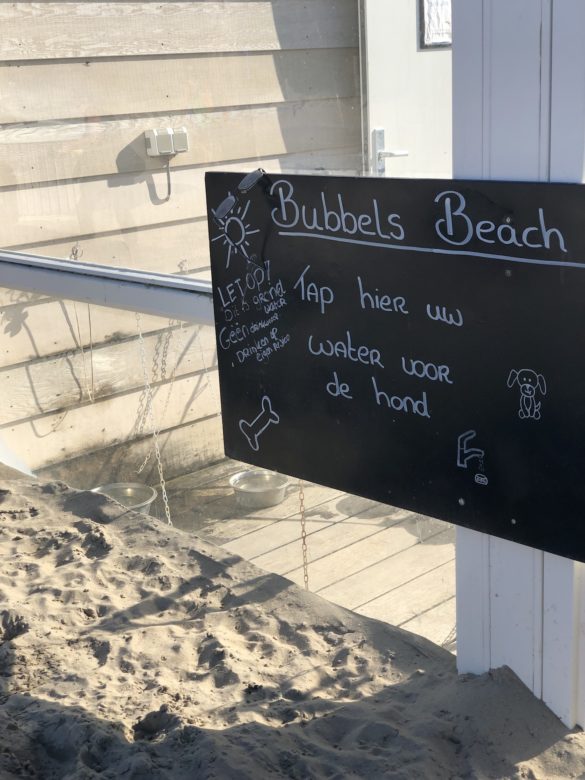 Bubbels Beach
LET OP!
Dit is grond
water
Géén drinkwater
Drinken op
eigen risico
Tap hier uw
water voor
de hond